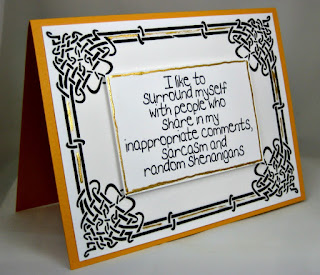 I like to
surround myself
with people who
share in my
inappropriate comments,
sarcasm and
random shenanigans